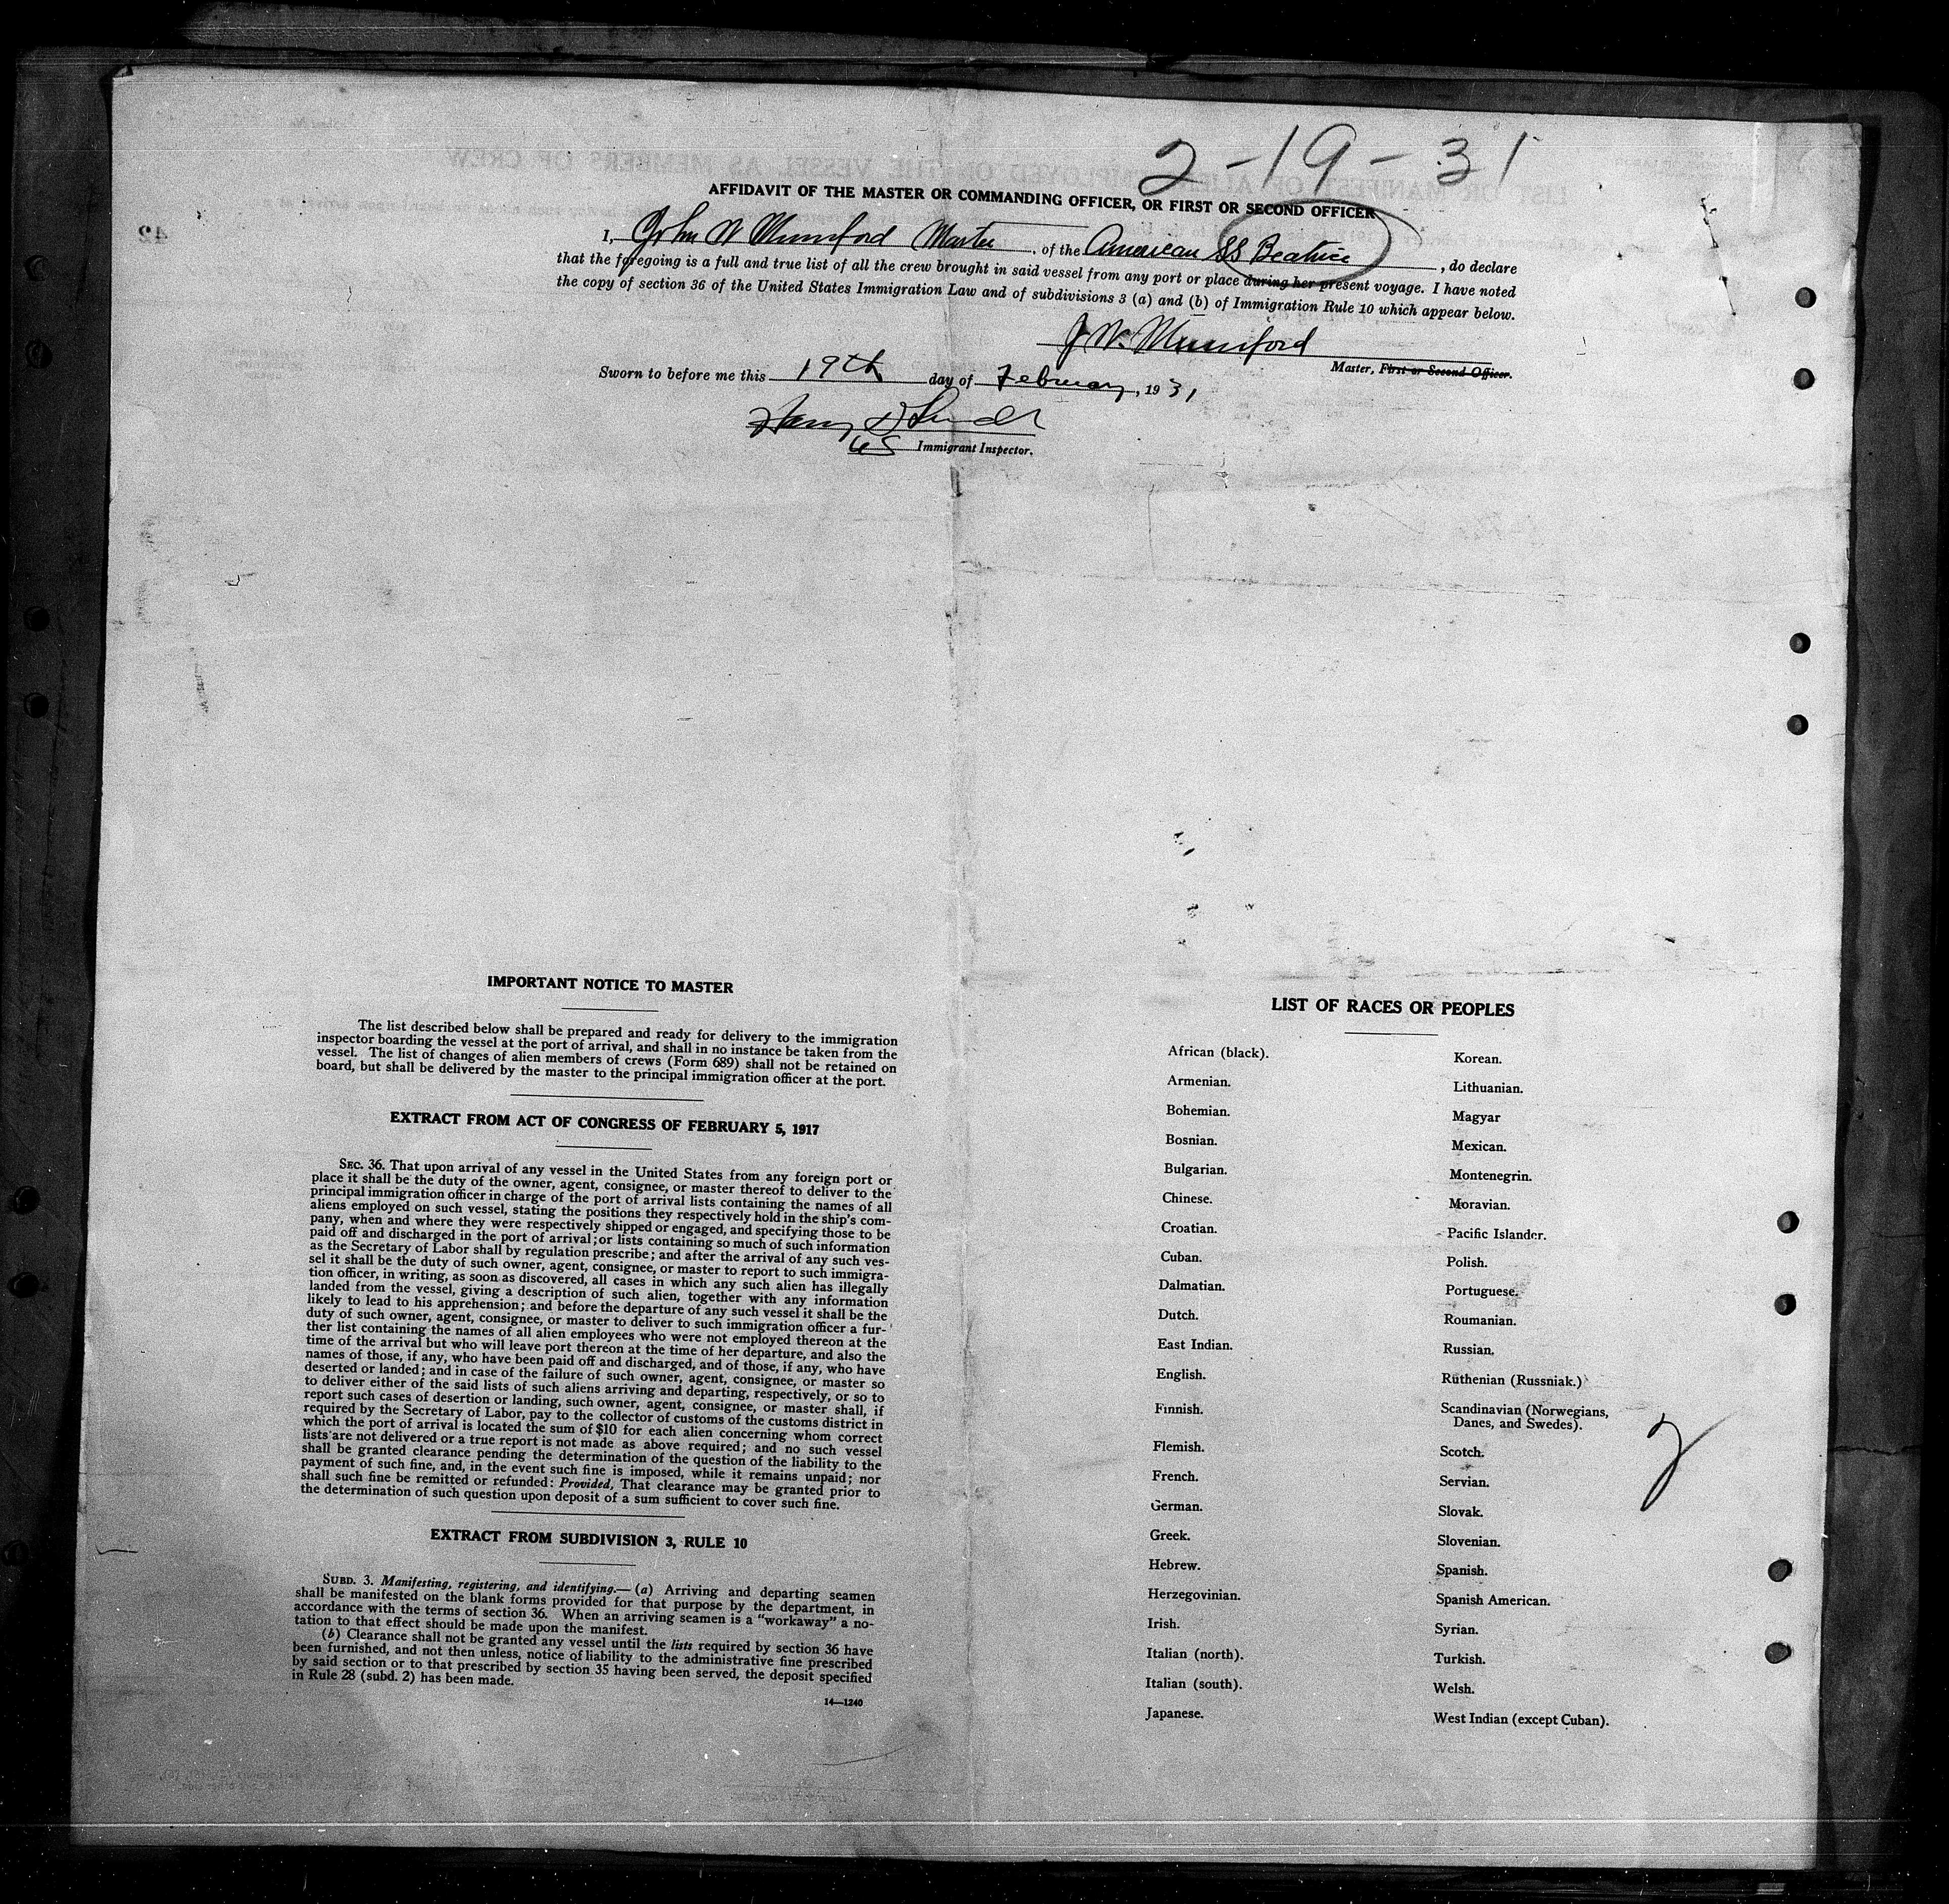 2-19-31
AFFIDAVIT OF THE MASTER OR COMMANDING OFFICER, OR FIRST OR SECOND OFFICER
I, John W Mumford Master, of the American SS Beatrice, do declare
that the foregoing is a full and true list of all the crew brought in said vessel from any port or place during her present voyage. I have noted
the copy of section 36 of the United States Immigration Law and of subdivisions 3 (a) and (b) of Immigration Rule 10 which appear below.
J W. Mumford
Master, First or Second Officer.
Sworn to before me this 19th day of February, 1931
Harry
US Immigrant Inspector.
IMPORTANT NOTICE TO MASTER
The list described below shall be prepared and ready for delivery to the immigration
inspector boarding the vessel at the port of arrival, and shall in no instance be taken from the
vessel. The list of changes of alien members of crews (Form 689) shall not be retained on
board, but shall be delivered by the master to the principal immigration officer at the port.
EXTRACT FROM ACT OF CONGRESS OF FEBRUARY 5, 1917
SEC. 36. That upon arrival of any vessel in the United States from any foreign port or
place it shall be the duty of the owner, agent, consignee, or master thereof to deliver to the
principal immigration officer in charge of the port of arrival lists containing the names of all
aliens employed on such vessel, stating the positions they respectively hold in the ship's com-
pany, when and where they were respectively shipped or engaged, and specifying those to be
paid off and discharged in the port of arrival; or lists containing so much of such information
as the Secretary of Labor shall by regulation prescribe; and after the arrival of any such ves-
sel it shall be the duty of such owner, agent, consignee, or master to report to such immigra-
tion officer, in writing, as soon as discovered, all cases in which any such alien has illegally
landed from the vessel, giving a description of such alien, together with any information
likely to lead to his apprehension; and before the departure of any such vessel it shall be the
duty of such owner, agent, consignee, or master to deliver to such immigration officer a fur-
ther list containing the names of all alien employees who were not employed thereon at the
time of the arrival but who will leave port thereon at the time of her departure, and also the
names of those, if any, who have been paid off and discharged, and of those, if any, who have
deserted or landed; and in case of the failure of such owner, agent, consignee, or master so
to deliver either of the said lists of such aliens arriving and departing, respectively, or so to
report such cases of desertion or landing, such owner, agent, consignee, or master shall, if
required by the Secretary of Labor, pay to the collector of customs of the customs district in
which the port of arrival is located the sum of $10 for each alien concerning whom correct
lists are not delivered or a true report is not made as above required; and no such vessel
shall be granted clearance pending the determination of the question of the liability to the
payment of such fine, and, in the event such fine is imposed, while it remains unpaid; nor
shall such fine be remitted or refunded: Provided, That clearance may be granted prior to
the determination of such question upon deposit of a sum sufficient to cover such fine.
EXTRACT FROM SUBDIVISION 3, RULE 10
SUBD. 3. Manifesting, registering, and identifying.—(a) Arriving and departing seamen
shall be manifested on the blank forms provided for that purpose by the department, in
accordance with the terms of section 36. When an arriving seamen is a "workaway" a no-
tation to that effect should be made upon the manifest.
(b) Clearance shall not be granted any vessel until the lists required by section 36 have
been furnished, and not then unless, notice of liability to the administrative fine prescribed
by said section or to that prescribed by section 35 having been served, the deposit specified
in Rule 28 (subd. 2) has been made.
14—1240
LIST OF RACES OR PEOPLES
African (black).
Armenian.
Bohemian.
Bosnian.
Bulgarian.
Chinese.
Croatian.
Cuban.
Dalmatian.
Dutch.
East Indian.
English.
Finnish.
Flemish.
French.
German.
Greek.
Hebrew.
Herzegovinian.
Irish.
Italian (north).
Italian (south).
Japanese.
Korean.
Lithuanian.
Magyar
Mexican.
Montenegrin.
Moravian.
Pacific Islander.
Polish.
Portuguese.
Roumanian.
Russian.
Ruthenian (Russniak.)
Scandinavian (Norwegians,
Danes, and Swedes).
Scotch.
Servian.
Slovak.
Slovenian.
Spanish.
Spanish American.
Syrian.
Turkish.
Welsh.
West Indian (except Cuban).
2